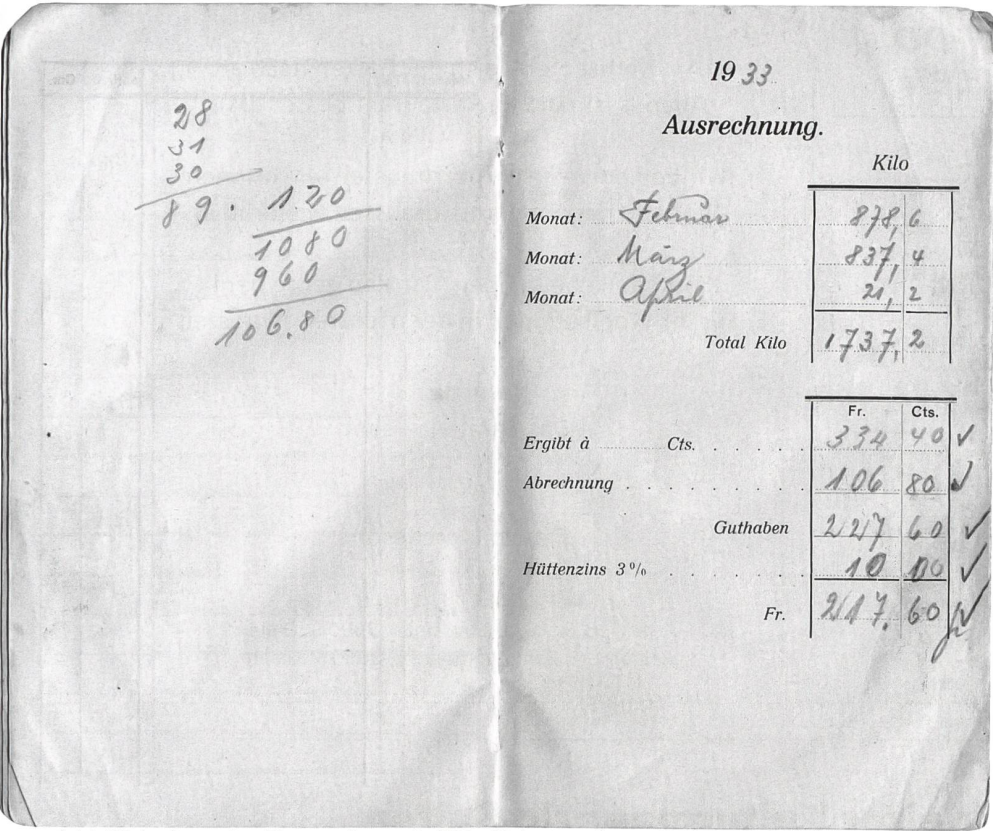 28
31
30
89 . 1.20
1080
960
106.80
1933
Ausrechnung.
Kilo
Monat: Februar 878,6
Monat: März 837,4
Monat: April 21,2
Total Kilo 1737,2
Fr. Cts.
Ergibt à Cts. 334 40 ✓
Abrechnung 106 80 ✓
Guthaben 227 60 ✓
Hüttenzins 3% 10 00 ✓
Fr. 217. 60 ✓